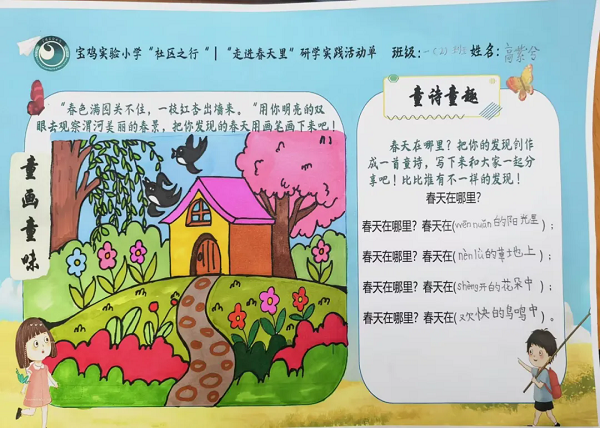 宝鸡实验小学“社区之行”|“走进春天里”研学实践活动单 班级:一(2)班 姓名:高紫兮
“春色满园关不住,一枝红杏出墙来。”用你明亮的双
眼去观察渭河美丽的春景,把你发现的春天用画笔画下来吧!
童画童味
童诗童趣
春天在哪里?把你的发现创作
成一首童诗,写下来和大家一起分
享吧!比比谁有不一样的发现!
春天在哪里?
春天在哪里?春天在(wēn nuǎn的阳光里);
春天在哪里?春天在(nèn lǜ的草地上);
春天在哪里?春天在(shèng开的花朵中);
春天在哪里?春天在(欢快的鸟鸣中)。